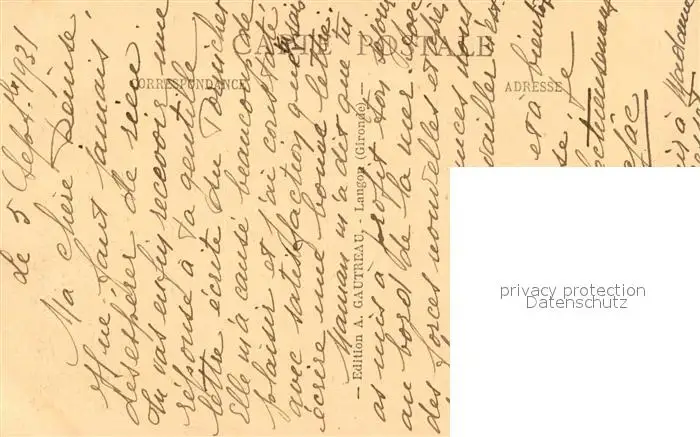 CARTE POSTALE
CORRESPONDANCE
ADRESSE
— Edition A. GAUTREAU, - Langon (Gironde) —
le 5 Sept. 1931
Ma chère Denise.
Il ne faut jamais
désespérer de rien.
Tu vas enfin recevoir une
réponse à ta gentille
lettre écrite du
Elle m'a causé beaucoup de
plaisir et j'ai constaté
avec satisfaction que tu sais
écrire une bonne lettre.
Maman m'a dit que tu
as mis à profit ton séjour
au bord de la mer
des forces nouvelles et après
vacances nous
travailler
et à bientôt
affectueusement
Madame
privacy protection
Datenschutz